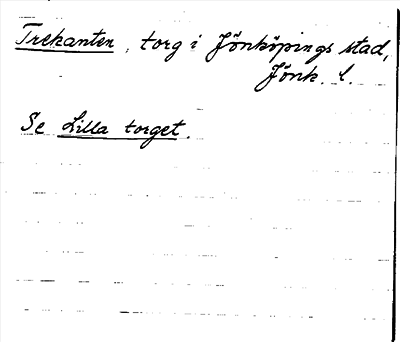 Trekanten, torg i Jönköpings stad,
Jönk. l.
Se Lilla torget.